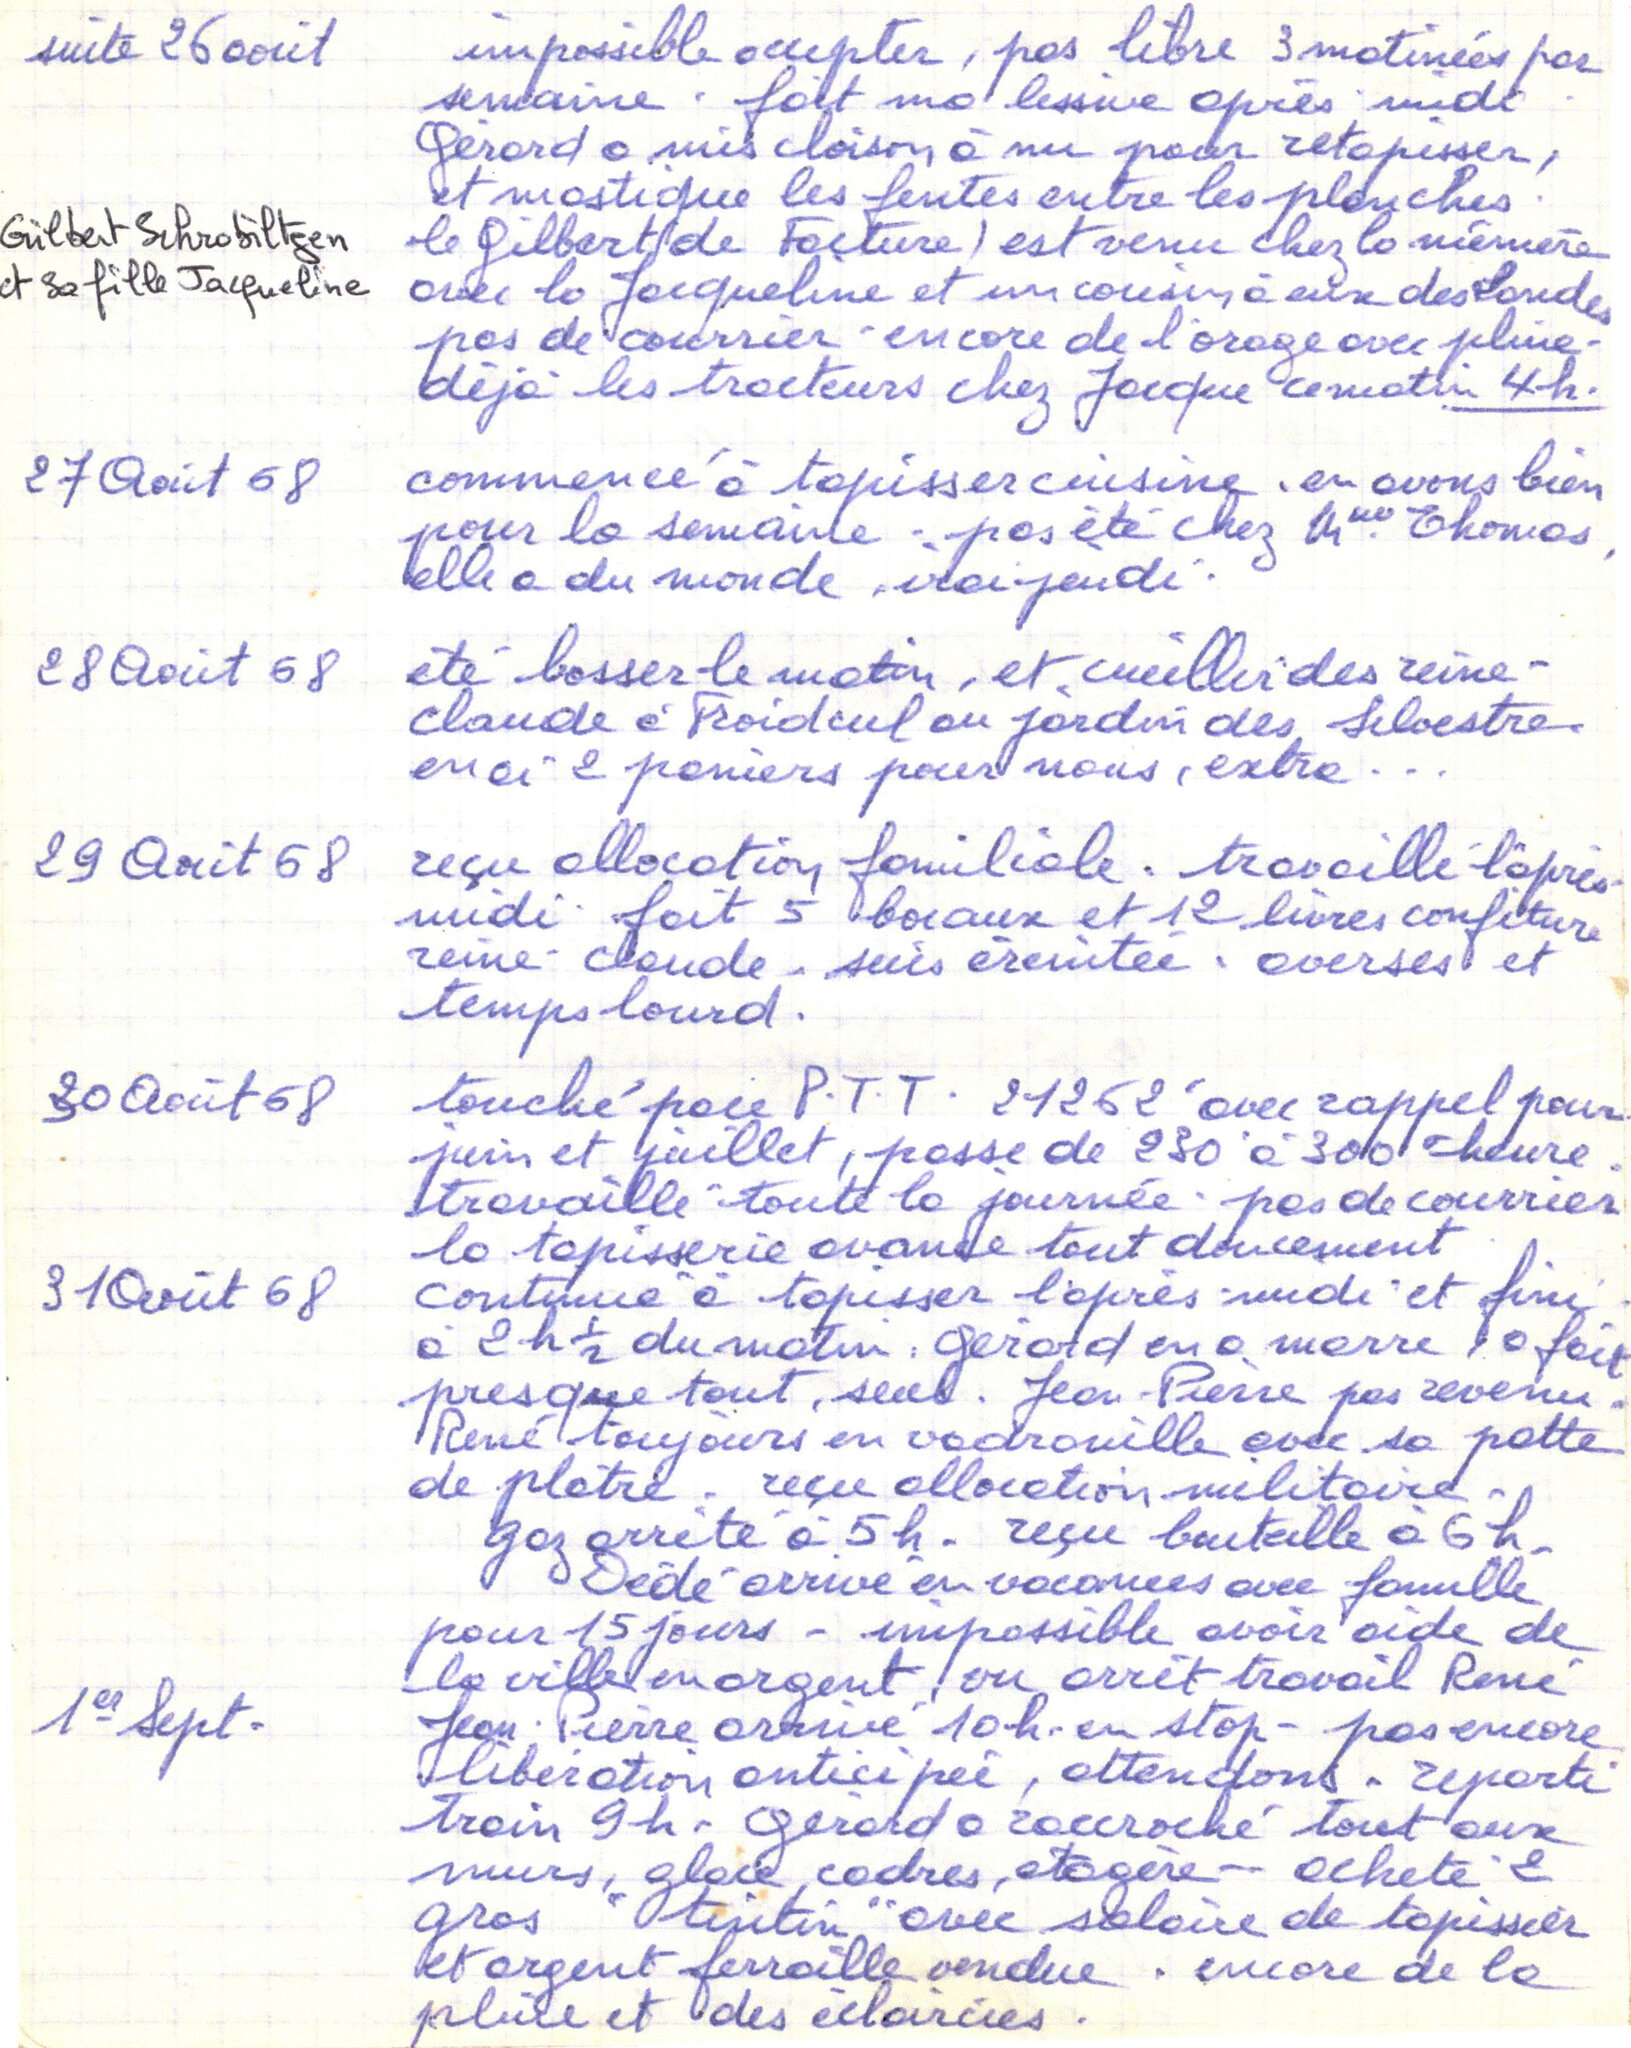 suite 26 août impossible accepter, pas libre 3 matinées par
semaine. fait ma lessive après midi.
Gérard a mis cloison à nu pour retapisser,
et mastique les fentes entre les planches.
Gilbert Schrobiltgen
et sa fille Jacqueline
le Gilbert (de Facture) est venu chez la mémère
avec la Jacqueline et un cousin à eux des Landes
pas de courrier - encore de l'orage avec pluie -
déjà les tracteurs chez Jacque ce matin 4h.
27 Août 68 commencé à tapisser cuisine. en avons bien
pour la semaine. pas été chez Mme Thomas,
elle a du monde. irai jeudi.
28 Août 68 été bosser le matin, et cueillir des reine-
claude à Froidcul au jardin des Silvestre.
en ai 2 paniers pour nous, extra...
29 Août 68 reçu allocation familiale. travaillé l'après
midi. fait 5 bocaux et 12 livres confiture
reine-claude. suis éreintée. averses et
temps lourd.
30 Août 68 touché paie P.T.T. 21262 avec rappel pour
juin et juillet, passe de 230 à 300 = heure.
travaillé toute la journée. pas de courrier
la tapisserie avance tout doucement.
31 Août 68 continué à tapisser l'après-midi et fini
à 2h ½ du matin. Gérard en a marre, a fait
presque tout, seul. Jean-Pierre pas revenu.
René toujours en vadrouille avec sa patte
de plâtre. reçu allocation militaire.
gaz arrêté à 5h. reçu bouteille à 6h.
Dédé arrivé en vacances avec famille
pour 15 jours - impossible avoir aide de
la ville en argent, vu arrêt travail René
1er Sept. Jean-Pierre arrivé 10h. en stop - pas encore
libération anticipée, attendons. reparti
train 9h. Gérard a raccroché tout aux
murs, glace, cadres, étagère - acheté 2
gros "tintin" avec salaire de tapissier
et argent ferraille vendue. encore de la
pluie et des éclaircies.